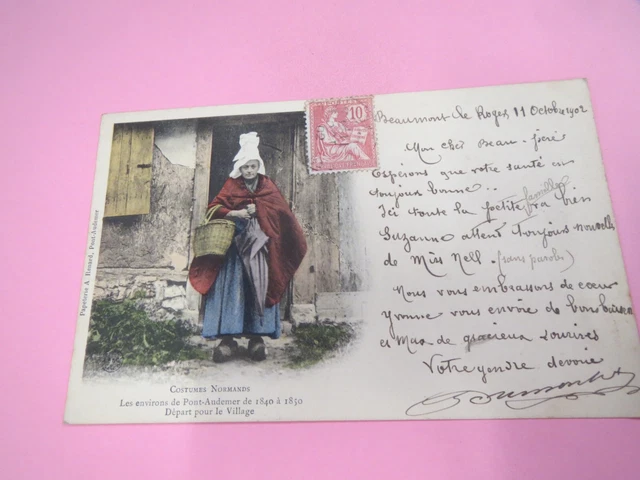 Beaumont le Roger 11 Octobre 1902
Mon cher Beau-père
Espérons que votre santé est
toujours bonne..
Ici toute la petite famille va bien
Suzanne attend toujours nouvelles
de Miss Nell. (sans parole)
Nous vous embrassons de cœur
Yvonne vous envoie de bons baisers
et Max de gracieux sourires
Votre gendre dévoué
10
Papeterie A. Renard, Pont-Audemer
Costumes Normands
Les environs de Pont-Audemer de 1840 à 1850
Départ pour le Village